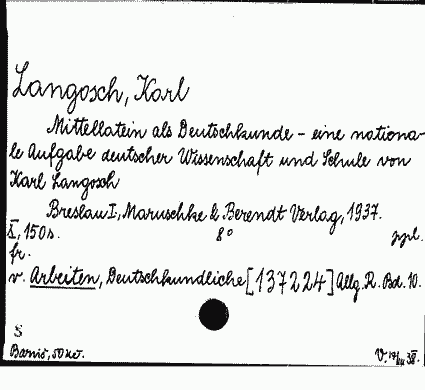 Langosch, Karl
Mittellatein als Deutschkunde - eine nationa-
le Aufgabe deutscher Wissenschaft und Schule von
Karl Langosch
Breslau I, Maruschke & Berendt Verlag, 1937.
X, 150 s. 8° ppl.
fr.
v. Arbeiten, Deutschkundliche [137224] Allg. R. Bd. 10.
S